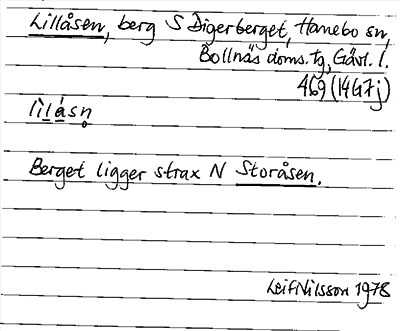 Lillåsen, berg S Digerberget, Hanebo sn,
Bollnäs doms. tg, Gävl. l.
469 (14G7j)
lìlásn̥
Berget ligger strax N Storåsen.
Leif Nilsson 1978